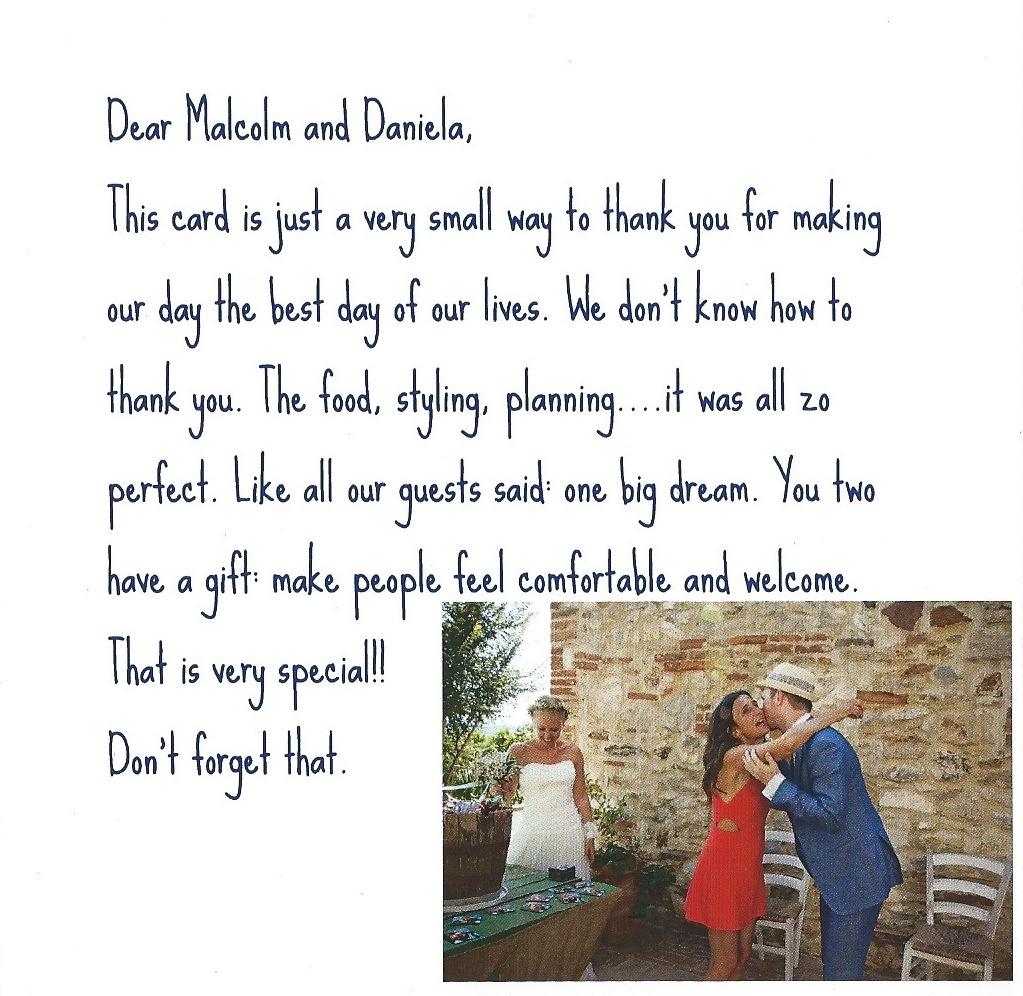 Dear Malcolm and Daniela,
This card is just a very small way to thank you for making
our day the best day of our lives. We don't know how to
thank you. The food, styling, planning....it was all zo
perfect. Like all our guests said: one big dream. You two
have a gift: make people feel comfortable and welcome.
That is very special!!!
Don't forget that.